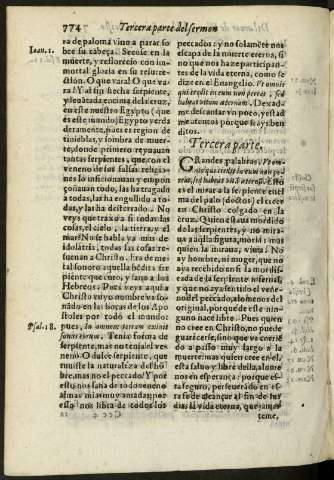 774
Tercera parte del sermon
Ioan. 1.
ra de paloma vino a parar so
bre su cabeça. Secose en la
muerte, y reflorecio con in-
mortal gloria en su resurre-
ction. O que vara! O que va
ra! Y al fin hecha serpiente,
y leuantada encima dela cruz, de
este nuestro Egypto (que
es este mundo) Egypto verda
deramente, pues es region de
tinieblas, y sombra de muer-
te, donde primero reynauan
tantas serpientes, que con el
veneno de las falsas religio-
nes lo inficionauan y empon
çoñauan todo, las ha tragado
a todas, las ha engullido a to-
dos, y las ha desterrado. No
veys que traxo a si todas las
cosas, el cielo, la tierra, y el
mar? No se habla ya mas de
idolatria, todas las cosas re-
suenan a Christo. Era de me-
tal sonoro aquella hechiza ser
piente que tuuo, y amo a los
Hebreos. Para veys aqui a
Christo cuyo nombre va so-
nando en las bocas de los Apo
stoles por todo el mundo
Psal. 18.
pues, In omnem terram exiuit
sonus eorum. Tenia forma de
serpiente, mas no tenia el ve-
neno. O dulce serpiente, que
tuuiste la naturaleza del hō
bre, mas no el peccado! Y por
esto nos sana de todo veneno
al mas muy amada; por
esso nos libra de todos los
peccados: y no solamēte nos
escapa de la muerte eterna, si
no que nos haze participan-
tes de la vida eterna, como se
dize en el Euangelio. Vt omnis
qui credit in eum non pereat, sed
habeat vitam aeternam. Dexad
me descansar vn poco, y estad
me atentos porque assi ys ben
ditos.
Tercera parte.
GRandes palabras. Vt om-
nis qui credit in eum non pereat,
sed habeat vitā aeternā. Esto
es el mirar a la serpiente enci
ma del palo (doctos) el creer
en Christo colgado en la
cruz. Quien estaua mordido
de las serpientes, y no mira
ua aq̄lla figura, moria: mas
quien la miraua, viuia. No
ay hombre, ni muger, que no
aya recebido en si la mordi-
dura de la serpiente infernal
y que no aya sentido el vene-
no del peccado, alomenos del
original, porque de este nin-
guno nace libre. Pues quien
no cree en Christo, no puede
guarecerse, sino que va corrie
do a passo muy largo a la
muerte: mas quien cree en el,
esta saluo y libre della, alome
nos en esperança: porque es-
ta seguro, perseuerando en es-
to se de alcançar al fin de sus
dias la vida eterna, que jamas
teme,